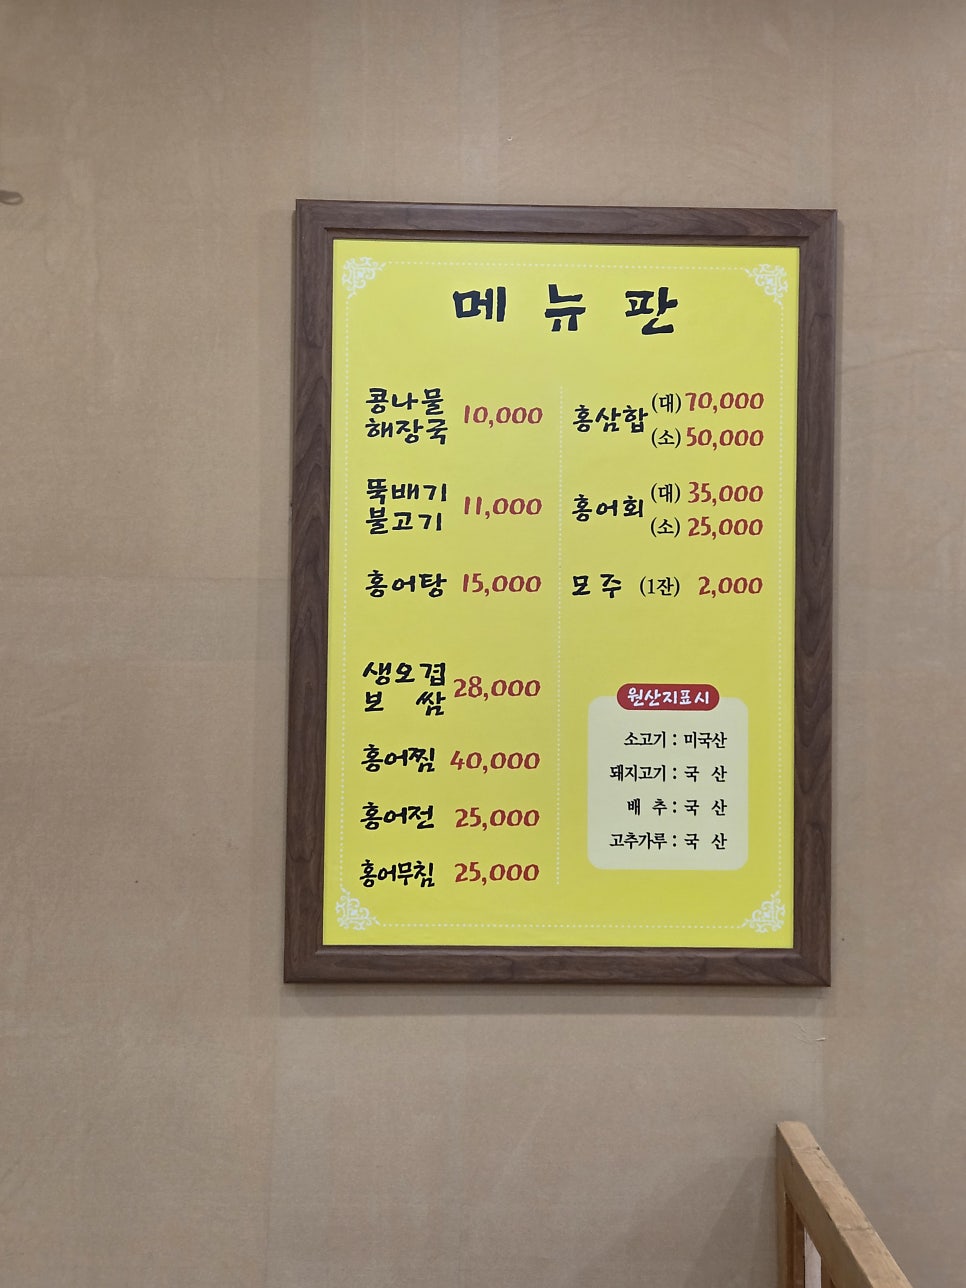 메뉴판
콩나물
해장국 10,000
뚝배기
불고기 11,000
홍어탕 15,000
생오겹
보 쌈 28,000
홍어찜 40,000
홍어전 25,000
홍어무침 25,000
홍삼합 (대) 70,000
(소) 50,000
홍어회 (대) 35,000
(소) 25,000
모주 (1잔) 2,000
원산지표시
소고기 : 미국산
돼지고기 : 국 산
배 추 : 국 산
고추가루 : 국 산